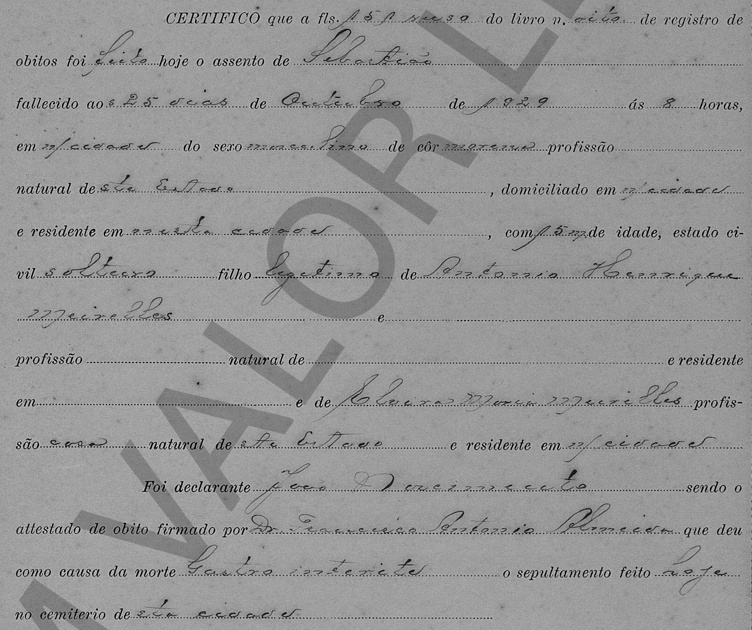 CERTIFICO que a fls. 151 verso do livro n. oito de registro de
obitos foi feito hoje o assento de Sebastião
fallecido aos 25 dias de Outubro de 1929 ás 8 horas,
em n/cidade do sexo masculino de côr morena profissão
natural de ste Estado, domiciliado em n/cidade
e residente em nesta cidade, com 15 m. de idade, estado ci-
vil solteiro filho legitimo de Antonio Henrique
Meirelles e
profissão natural de e residente
em e de Elvira Maria Meirelles profis-
são casa natural de ste Estado e residente em n/cidade
Foi declarante João Nascimento sendo o
attestado de obito firmado por Dr. Francisco Antonio Almeida que deu
como causa da morte Gastro interite o sepultamento feito hoje
no cemiterio de sta cidade
VALOR